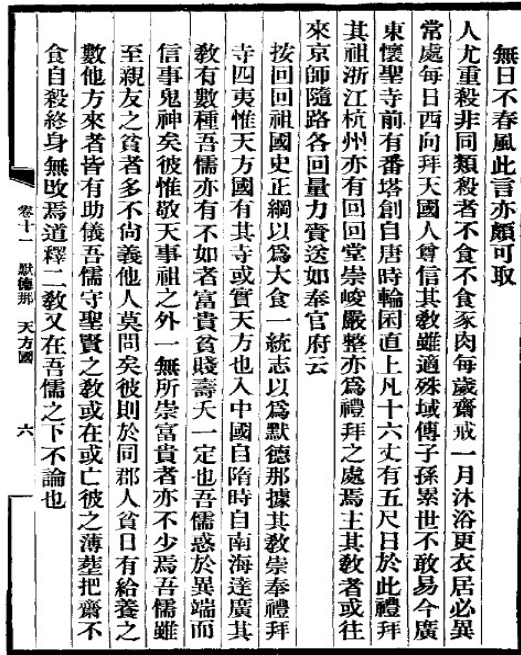 無日不春風此言亦頗可取
人尤重殺非同類殺者不食不食豕肉每歲齋戒一月沐浴更衣居必異
常處每日西向拜天國人尊信其敎雖適殊域傳子孫累世不敢易今廣
東懷聖寺前有番塔創自唐時輪囷直上凡十六丈有五尺日於此禮拜
其祖浙江杭州亦有回回堂崇峻嚴整亦爲禮拜之處焉主其敎者或往
來京師隨路各回量力賫送如奉官府云
按回回祖國史正綱以爲大食一統志以爲默德那據其敎崇奉禮拜
寺四夷惟天方國有其寺或實天方也入中國自隋時自南海達廣其
敎有數種吾儒亦有不如者富貴貧賤壽夭一定也吾儒惑於異端而
信事鬼神矣彼惟敬天事祖之外一無所崇富貴者亦不少焉吾儒雖
至親友之貧者多不尙義他人莫問矣彼則於同郡人貧日有給養之
數他方來者皆有助儀吾儒守聖賢之敎或在或亡彼之薄葬把齋不
食自殺終身無改焉道釋二敎又在吾儒之下不論也
卷十一 默德那 天方國 六